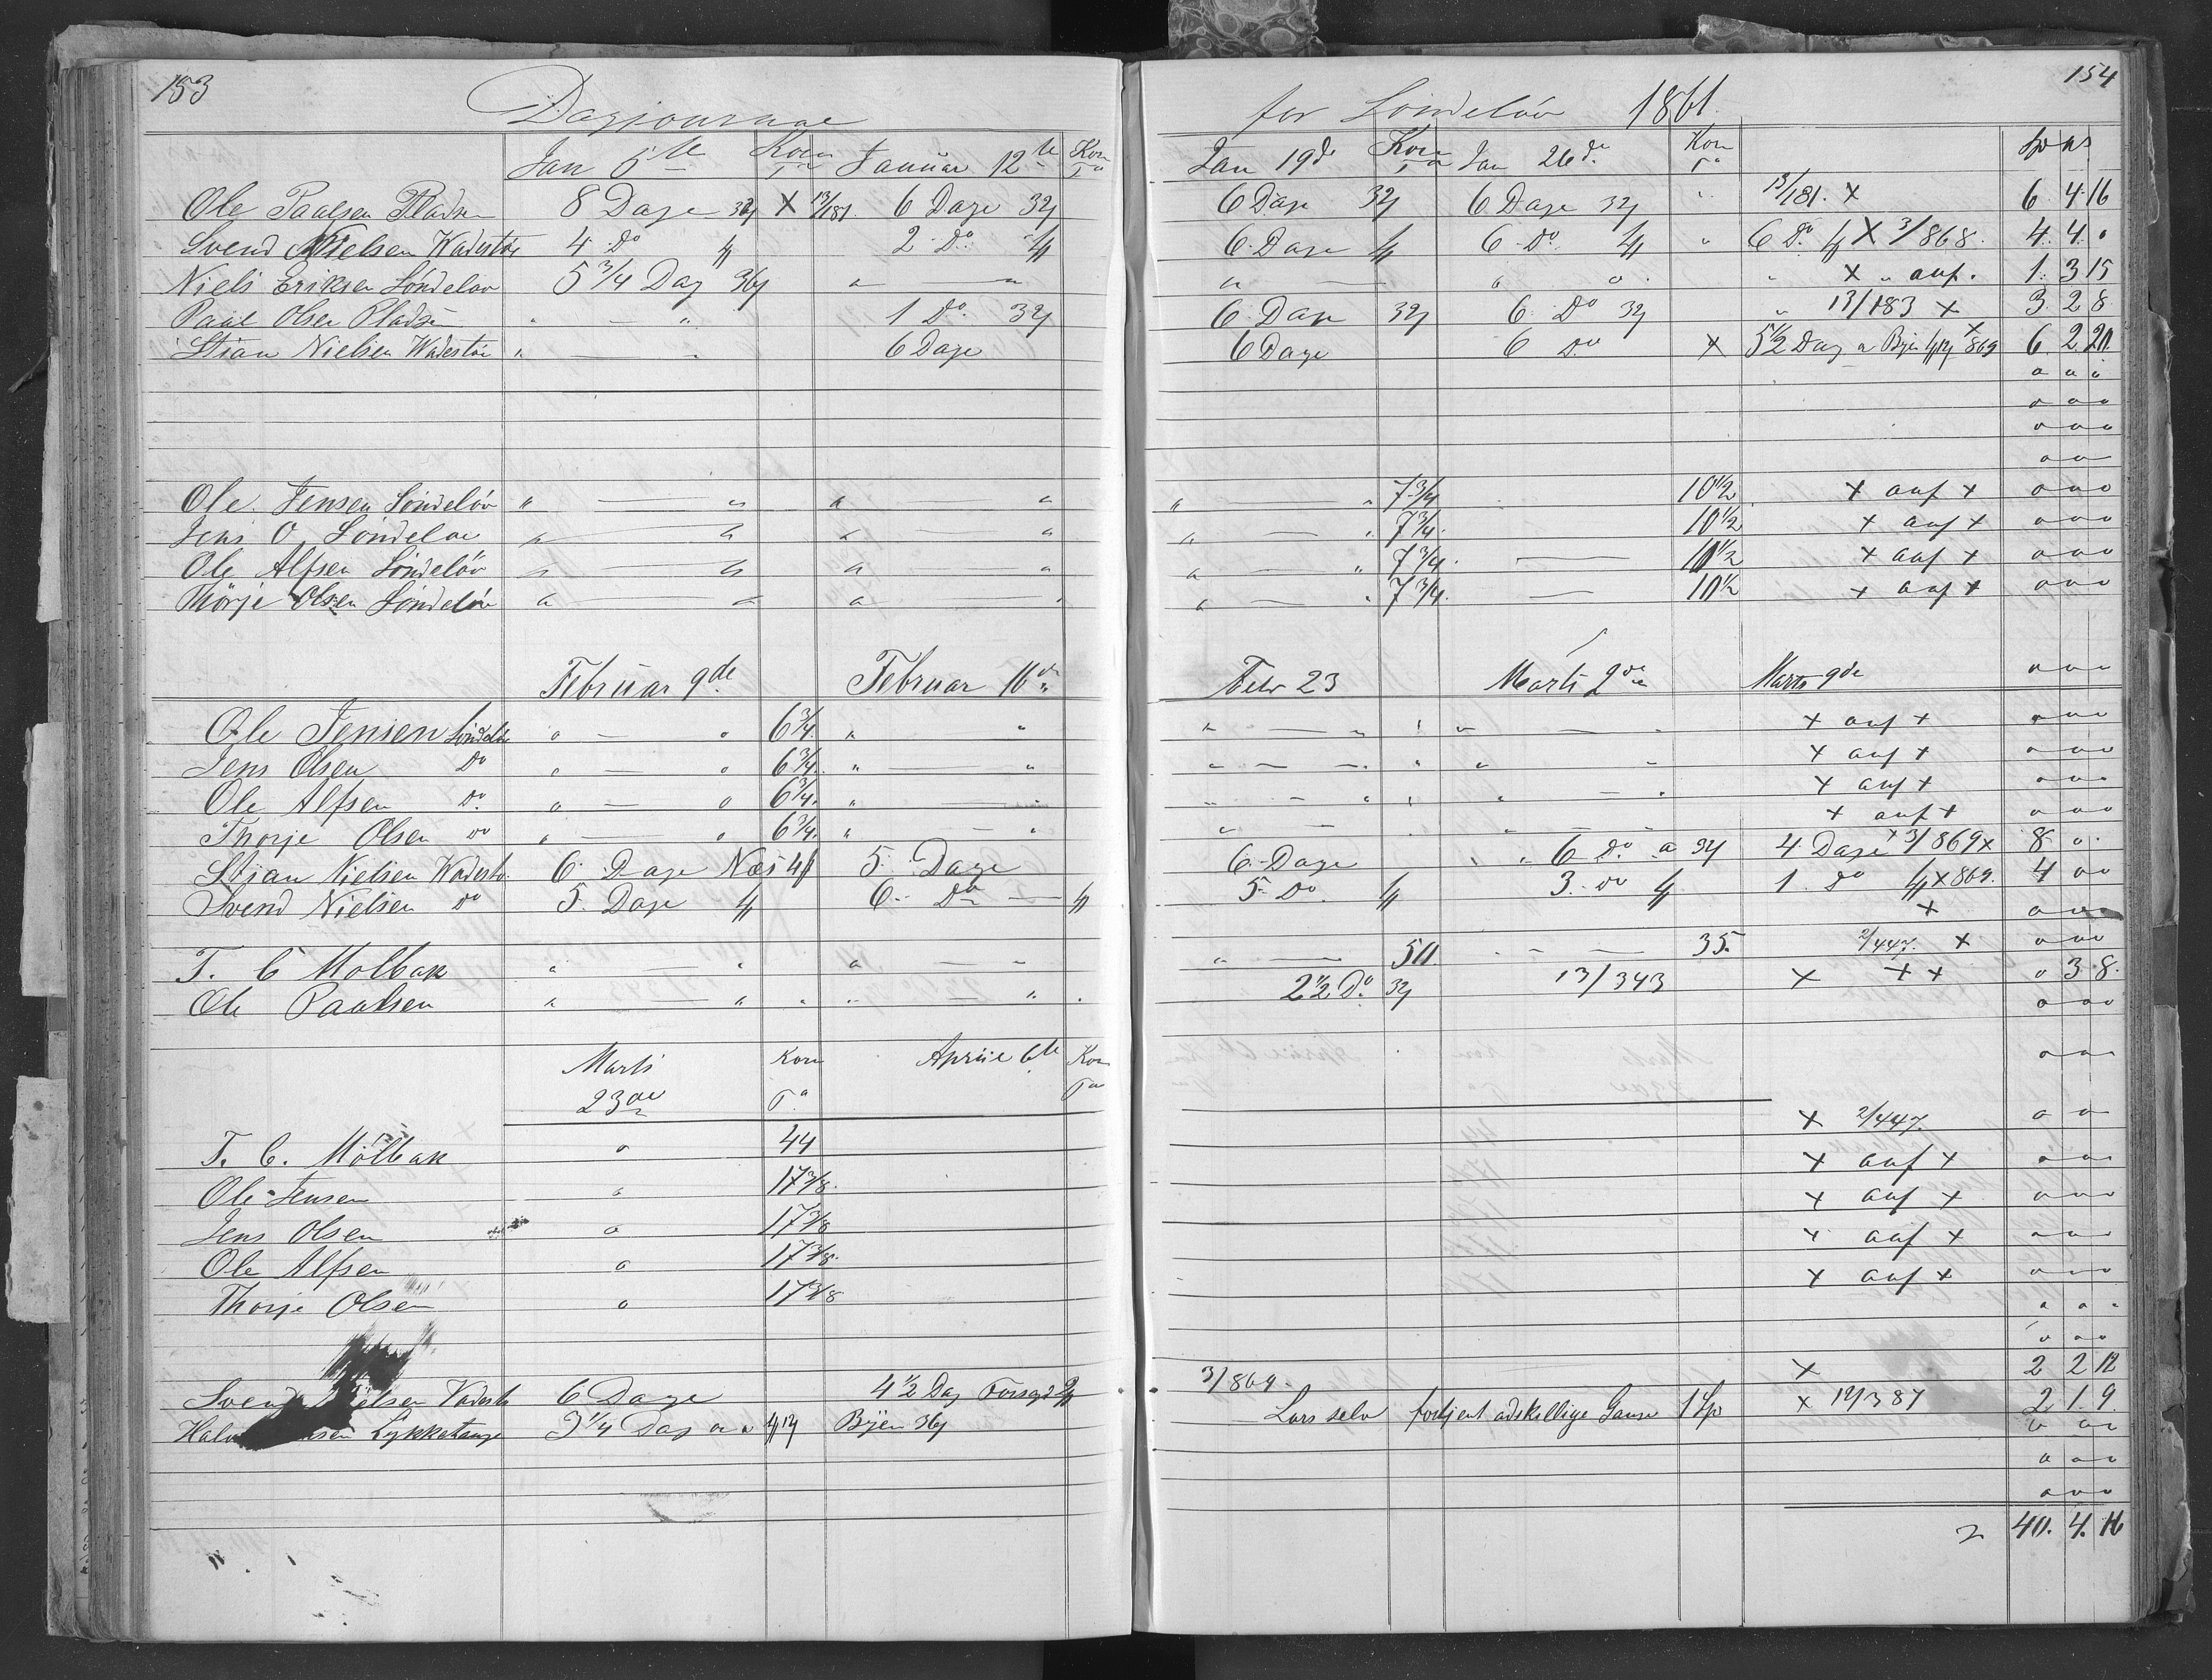 153 154
Dagjournal for Söndelöv 1861.
Jan 5te Korn Ta Januar 12te Korn Ta Jan 19de Korn Ta Jan 26de Korn Ta Sp
Ole Paalsen Pladsen 8 Dage X 13/181. 6 Dage 6 Dage 6 Dage " 13/181. X 6. 4. 16
Svend Nielsen 4 Do 2 Do 6 Dage 6 Do " 6 Do X 3/868. 4. 4. 0
Niels Eriksen Söndeløv 5 3/4 Dag " — " " — " " " X " auf. 1. 3 15
Paul Olsen Pladsen " — " 1 Do. 6 Dage 6 Do " 13/183 X 3. 2 8
Stian Nielsen " — " 6 Dage 6 Dage 6 Do X 5 1/2 Dag a Byen X 869 6. 2. 20.
o o o
o o o
o o o
o o
Ole Jensen Söndelöv " — " " " " — " 7 3/4 10 1/2 X auf X o o o
Jens O Söndeløv " — " " — " " — " 7 3/4. 10 1/2 X auf X o o o
Ole Alfsen Söndelöv " — " " — " " — " 7 3/4. — 10 1/2 X auf X o o o
Thorje Olsen Söndelöv " — " " — " " — " 7 3/4. — 10 1/2 X auf X o o o
Februar 9de Februar 16de Febr 23 Marts 2de Marts 9de o o o
Ole Jensen Söndelöv o — o 6 3/4. " " " — " " " — " X auf X o o o
Jens Olsen Do o — o 6 3/4. " — " " — " " " " X auf X o o o
Ole Alfsen Do. o — o 6 3/4. " — " " — " " " — " X auf X o o o
Thorje Olsen Do " — o 6 3/4. " — " " — " — " X auf X o o o
Stian Nielsen 6 Dage Næs 5 Dage 6 Dage " " 6 Do a 4 Dage X 3/869 X 8 o.
Svend Nielsen Do 5. Dage 6. Do — 5 Do. 3. Do 1 Do X 869. 4 o o
X o o o
T. C Mölbak " — " " — " " — 50. " — 35. 2/447. X o o o
Ole Paalsen " — " " " — " 2 1/2 Do. 13/343 X X X o 3 8.
o o o
Marts 23de Korn Ta April 6te Korn Ta o o o
T. C. Mölbak o 44 X 2/447. o o
Ole Jensen o 17 3/8. X auf X o o o
Jens Olsen o 17 3/8 X auf X o o o
Ole Alfsen o 17 3/8. X auf X o o o
Thorje Olsen o 17 3/8 X auf X o o o
o o o
o o o
Svend Nielsen 6 Dage 4 1/2 Dag 3/869. X 2 2 12
Lykketange 3 1/4 Dag Byen Lars selv fortjent adskellige Gange 1 Sp X 12/387 2. 1. 9.
o o o
o o o
o o o
40. 4. 16